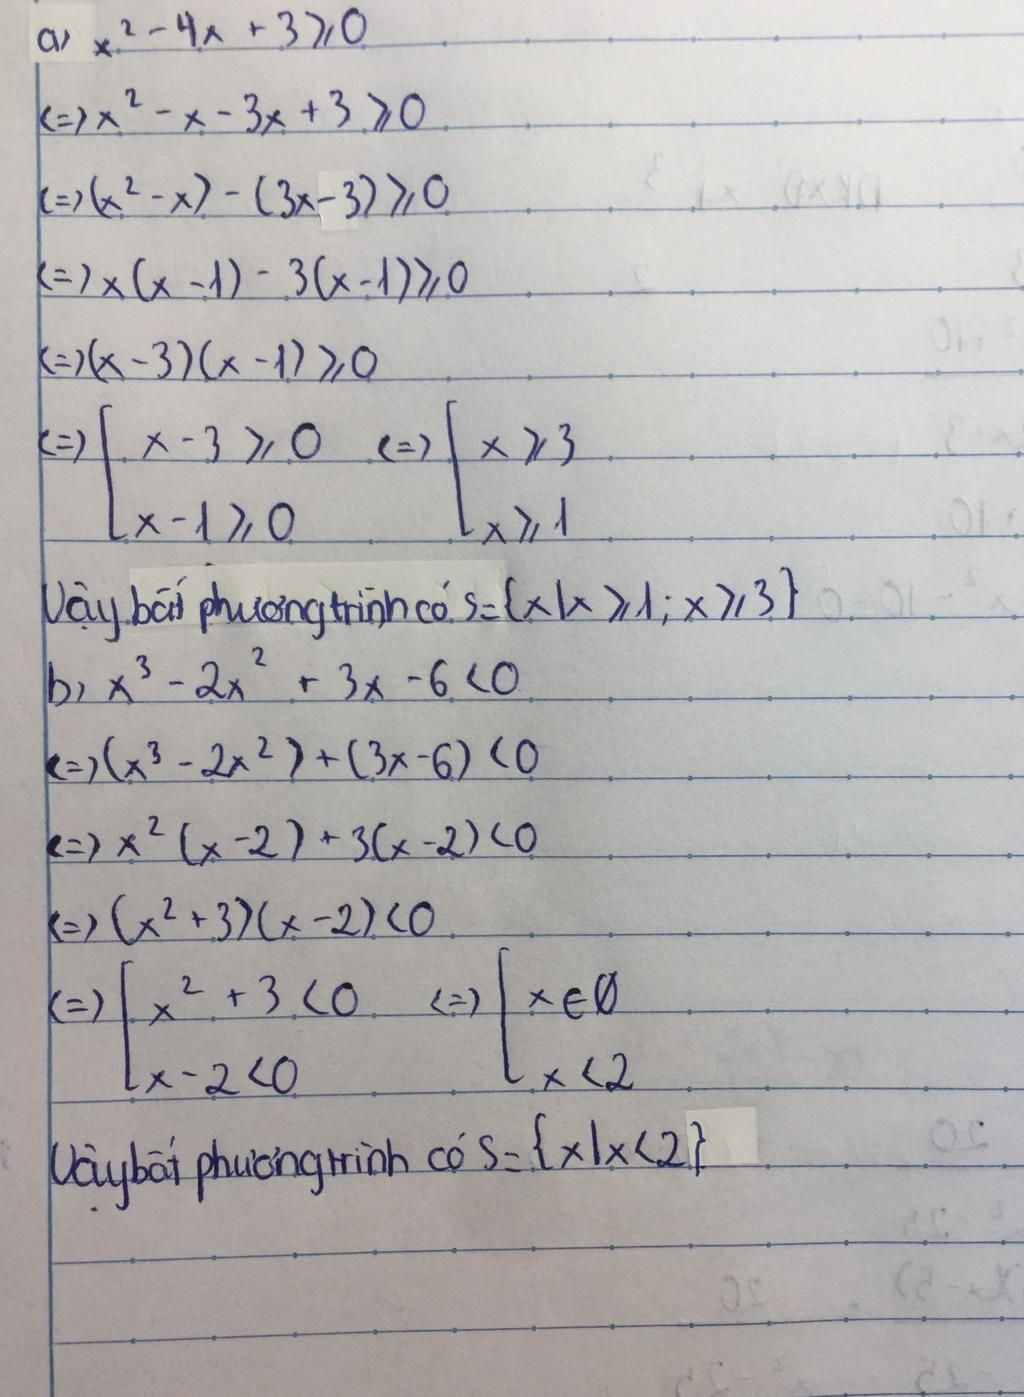 a) x² - 4x + 3 ⩾ 0
<=> x² - x - 3x + 3 ⩾ 0
<=> (x² - x) - (3x - 3) ⩾ 0
<=> x(x - 1) - 3(x - 1) ⩾ 0
<=> (x - 3)(x - 1) ⩾ 0
<=> [ x - 3 ⩾ 0 <=> [ x ⩾ 3
x - 1 ⩾ 0 x ⩾ 1
Vậy bất phương trình có S = {x | x ⩾ 1; x ⩾ 3}
b) x³ - 2x² + 3x - 6 < 0
<=> (x³ - 2x²) + (3x - 6) < 0
<=> x² (x - 2) + 3(x - 2) < 0
<=> (x² + 3)(x - 2) < 0
<=> [ x² + 3 < 0 <=> [ x ∈ Ø
x - 2 < 0 x < 2
Vậy bất phương trình có S = {x | x < 2}